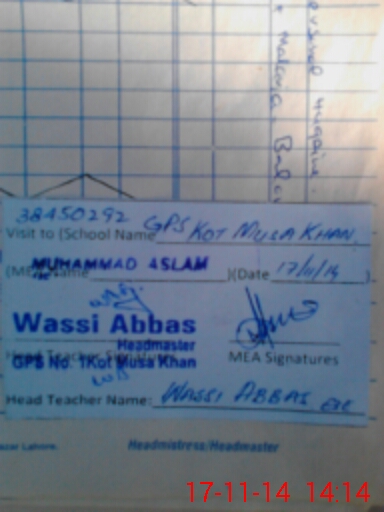 38450292
Visit to (School Name GPS KOT MUSA KHAN
(MEA Name MUHAMMAD ASLAM )(Date 17/11/14 )
Wassi Abbas
Headmaster
Head Teacher Signatures MEA Signatures
GPS No. 1Kot Musa Khan
Head Teacher Name: WASSI ABBAS
Lahore.
Headmistress/Headmaster
17-11-14 14:14